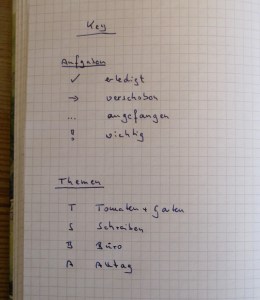 Key
Aufgaben
✓ erledigt
→ verschoben
... angefangen
! wichtig
Themen
T Tomaten + Garten
S Schreiben
B Büro
A Alltag